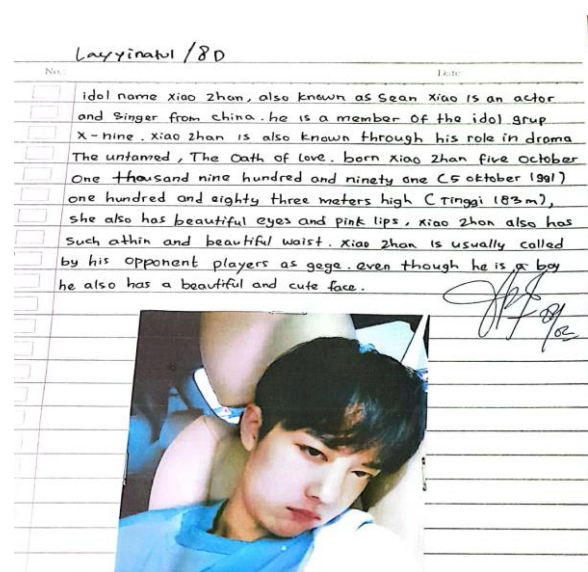 Layyinatul /8D
No.: Date:
idol name xiao zhan, also known as Sean xiao is an actor
and singer from china. he is a member of the idol grup
x-nine. xiao zhan is also known through his role in drama
The untamed, The Oath of love. born xiao zhan five october
One thousand nine hundred and ninety one (5 oktober 1991)
one hundred and eighty three meters high (Tinggi 183 m),
she also has beautiful eyes and pink lips, xiao zhan also has
such athin and beautiful waist. xiao zhan is usually called
by his opponent players as gege. even though he is a boy
he also has a beautiful and cute face.